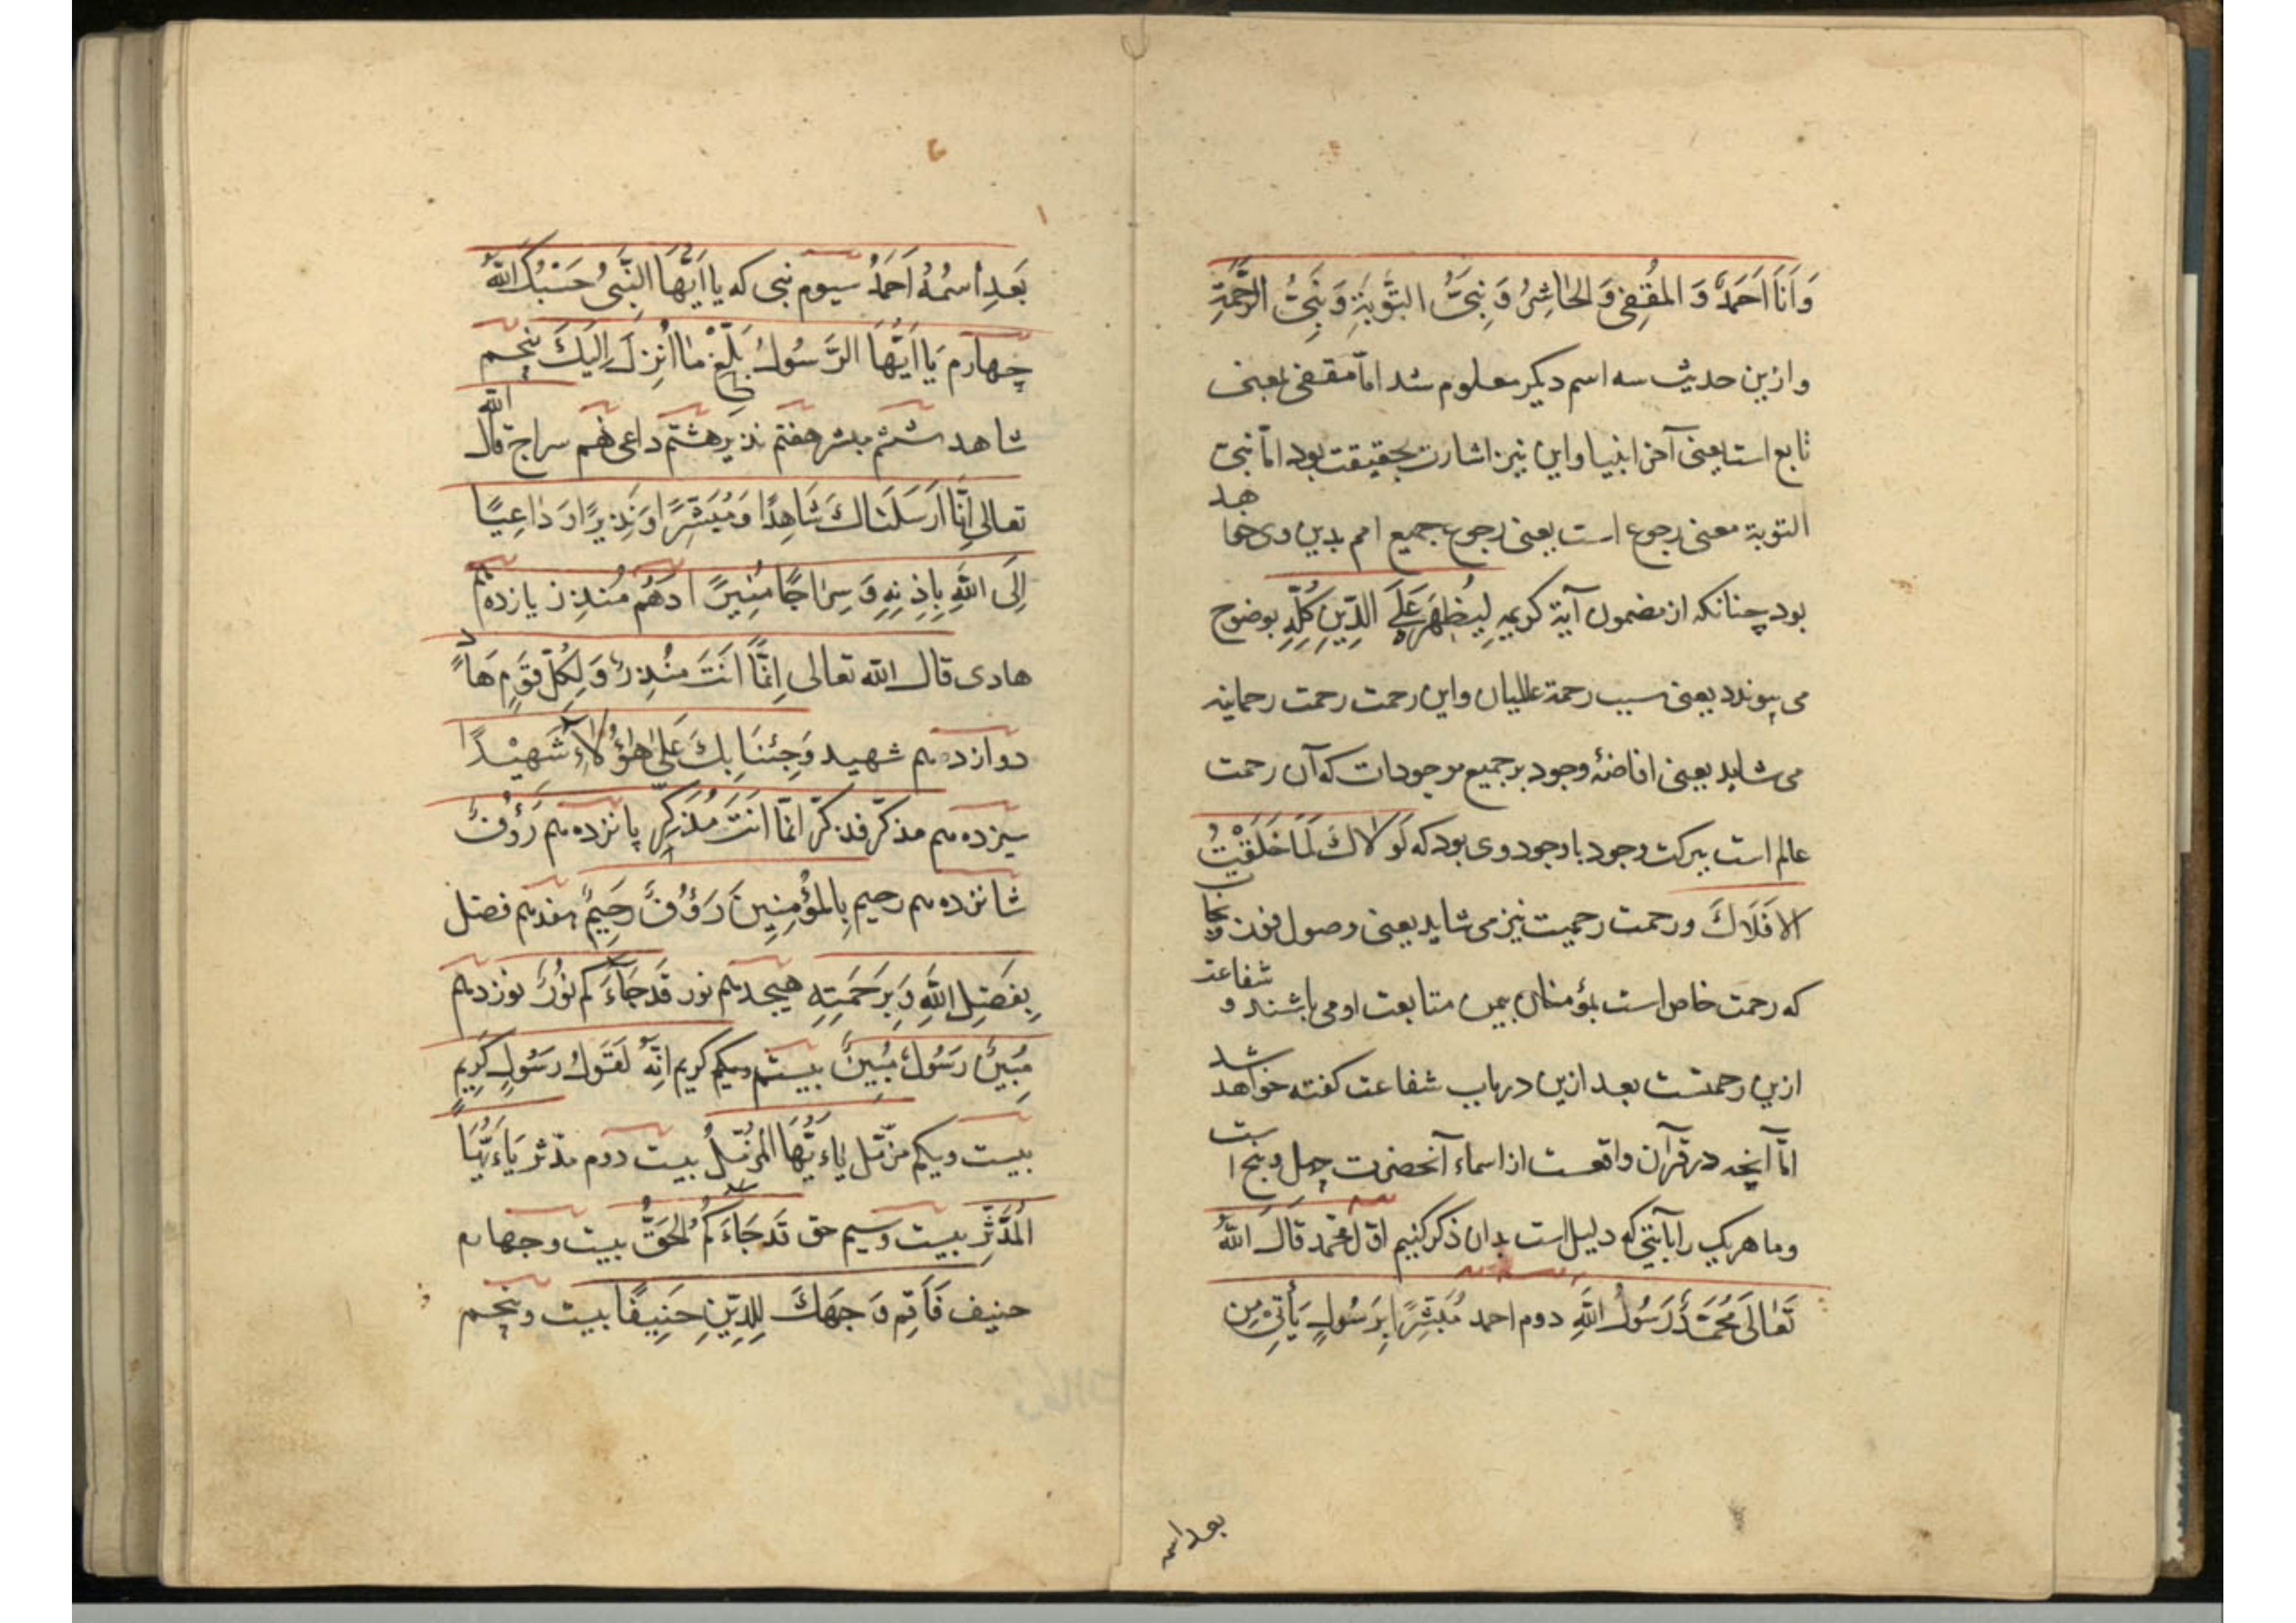 وَاَنَا اَحْمَدُ وَ المُقَفِّى وَ الحَاشِرُ وَ نَبِىُّ التَّوْبَةِ وَ نَبِىُّ الرَّحْمَةِ
و ازین حدیث سه اسم دیکر معلوم شد اما مقفی بمعنی
تابع است یعنی آخر انبیا و این نیز اشارت بحقیقت بود اما نبی
التوبة معنی رجوع است یعنی رجوع جمیع امم بدین وی خواهد
بود چنانکه از مضمون آیة کریمه لِیُظْهِرَهُ عَلَی الدِّینِ کُلِّهِ بوضوح
می پیوندد یعنی سبب رحمة عالمیان و این رحمت رحمت رحمانیه
می شاید یعنی افاضهٔ وجود بر جمیع موجودات که آن رحمت
عالم است ببرکت وجود با وجود وی بود که لَوْلَاكَ لَمَا خَلَقْتُ
الاَفْلَاكَ و رحمت رحمیت نیز می شاید یعنی وصول فوز و نجات
که رحمت خاص است بمؤمنان بیمن متابعت او می باشند و شفاعت
ازین رحمتست بعد ازین در باب شفاعت کفته خواهد شد
اما آنچه در قرآن واقعست از اسماء آنحضرت چهل و پنج است
و ما هر یک را بآیتی که دلیل است بدان ذکر کنیم اول محمد قَالَ اللّٰهُ
تَعَالَى مُحَمَّدٌ رَسُولُ اللّٰهِ دوم احمد مُبَشِّرًا بِرَسُولٍ يَأْتِى مِن
بعد اسمه
بَعْدِ اسْمُهُ اَحْمَدُ سیوم نبی که یا اَیُّهَا النَّبِىُّ حَسْبُكَ اللّٰهُ
چهارم يَا اَيُّهَا الرَّسُولُ بَلِّغْ مَا اُنْزِلَ اِلَيْكَ پنجم
شاهد ششم مبشر هفتم نذیر هشتم داعی نهم سراج قال اللّٰه
تعالی اِنَّا اَرْسَلْنَاكَ شَاهِدًا وَ مُبَشِّرًا وَ نَذِيرًا وَ دَاعِيًا
اِلَى اللّٰهِ بِاِذْنِهِ وَ سِرَاجًا مُنِيرًا دهم مُنذِر یازدهم
هادی قال اللّٰه تعالی اِنَّمَا اَنْتَ مُنْذِرٌ وَ لِكُلِّ قَوْمٍ هَادٍ
دوازدهم شهید وَ جِئْنَا بِكَ عَلَى هٰؤُلَاءِ شَهِيْدًا
سیزدهم مذکر فذکّر انّما اَنْتَ مُذَكِّر پانزدهم رَؤُفٌ
شانزدهم رحیم بِالْمُؤْمِنِينَ رَؤُفٌ رَحِيمٌ هفدهم فضل
بِفَضْلِ اللّٰهِ وَ بِرَحْمَتِهِ هیجدهم نور قَدْ جَاءَكُم نُورٌ نوزدهم
مُبِينٌ رَسُولٌ مُبِينٌ بیستم کریم اِنَّهُ لَقَوْلُ رَسُولٍ كَرِيمٍ
بیست و یکم مزّمّل یَاءَیُّهَا الْمُزَّمِّلُ بیست دوم مدّثر یَاءَیُّهَا
الْمُدَّثِّر بیست و سیم حق قَدْ جَاءَكُمُ الْحَقُّ بیست و چهارم
حنیف فَاَقِمْ وَجْهَكَ لِلدِّينِ حَنِيفًا بیست و پنجم